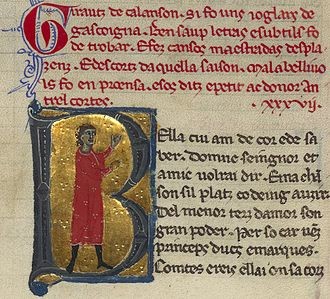 Giraut de calanson. si fo uns ioglars de
gascoigna. Ben saup letras e subtils fo
de trobar. E fez cansos maestradas desplazenz.
E descort daquella saison. Mal abellivols
fo en proensa. e sos ditz e petit ac de nom en-
tre·ls cortes. XXXVII.
Bella cui am de cor e de sa
ber. Domne seingnor et
amic volrai dir. E ma chã
son sil platz co deing auzir
Del menor terz damor son
gran poder. Per so car uenz
princeps ducs e marques.
Comtes e reis e llai on sa cort